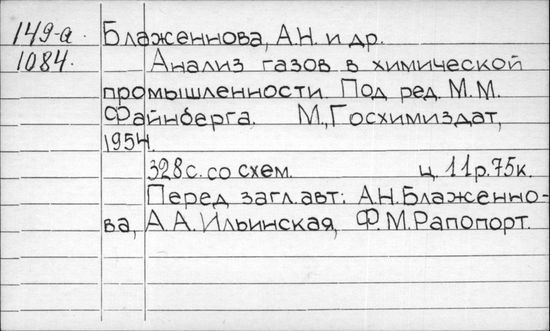 149-а. Блаженнова, А.Н. и др.
1084. Анализ газов в химической
промышленности. Под ред. М.М.
Файнберга. М., Госхимиздат,
1954.
328 с. со схем. ц. 11 р. 75 к.
Перед загл. авт: А.Н. Блаженно-
ва, А.А. Ильинская, Ф.М. Рапопорт.